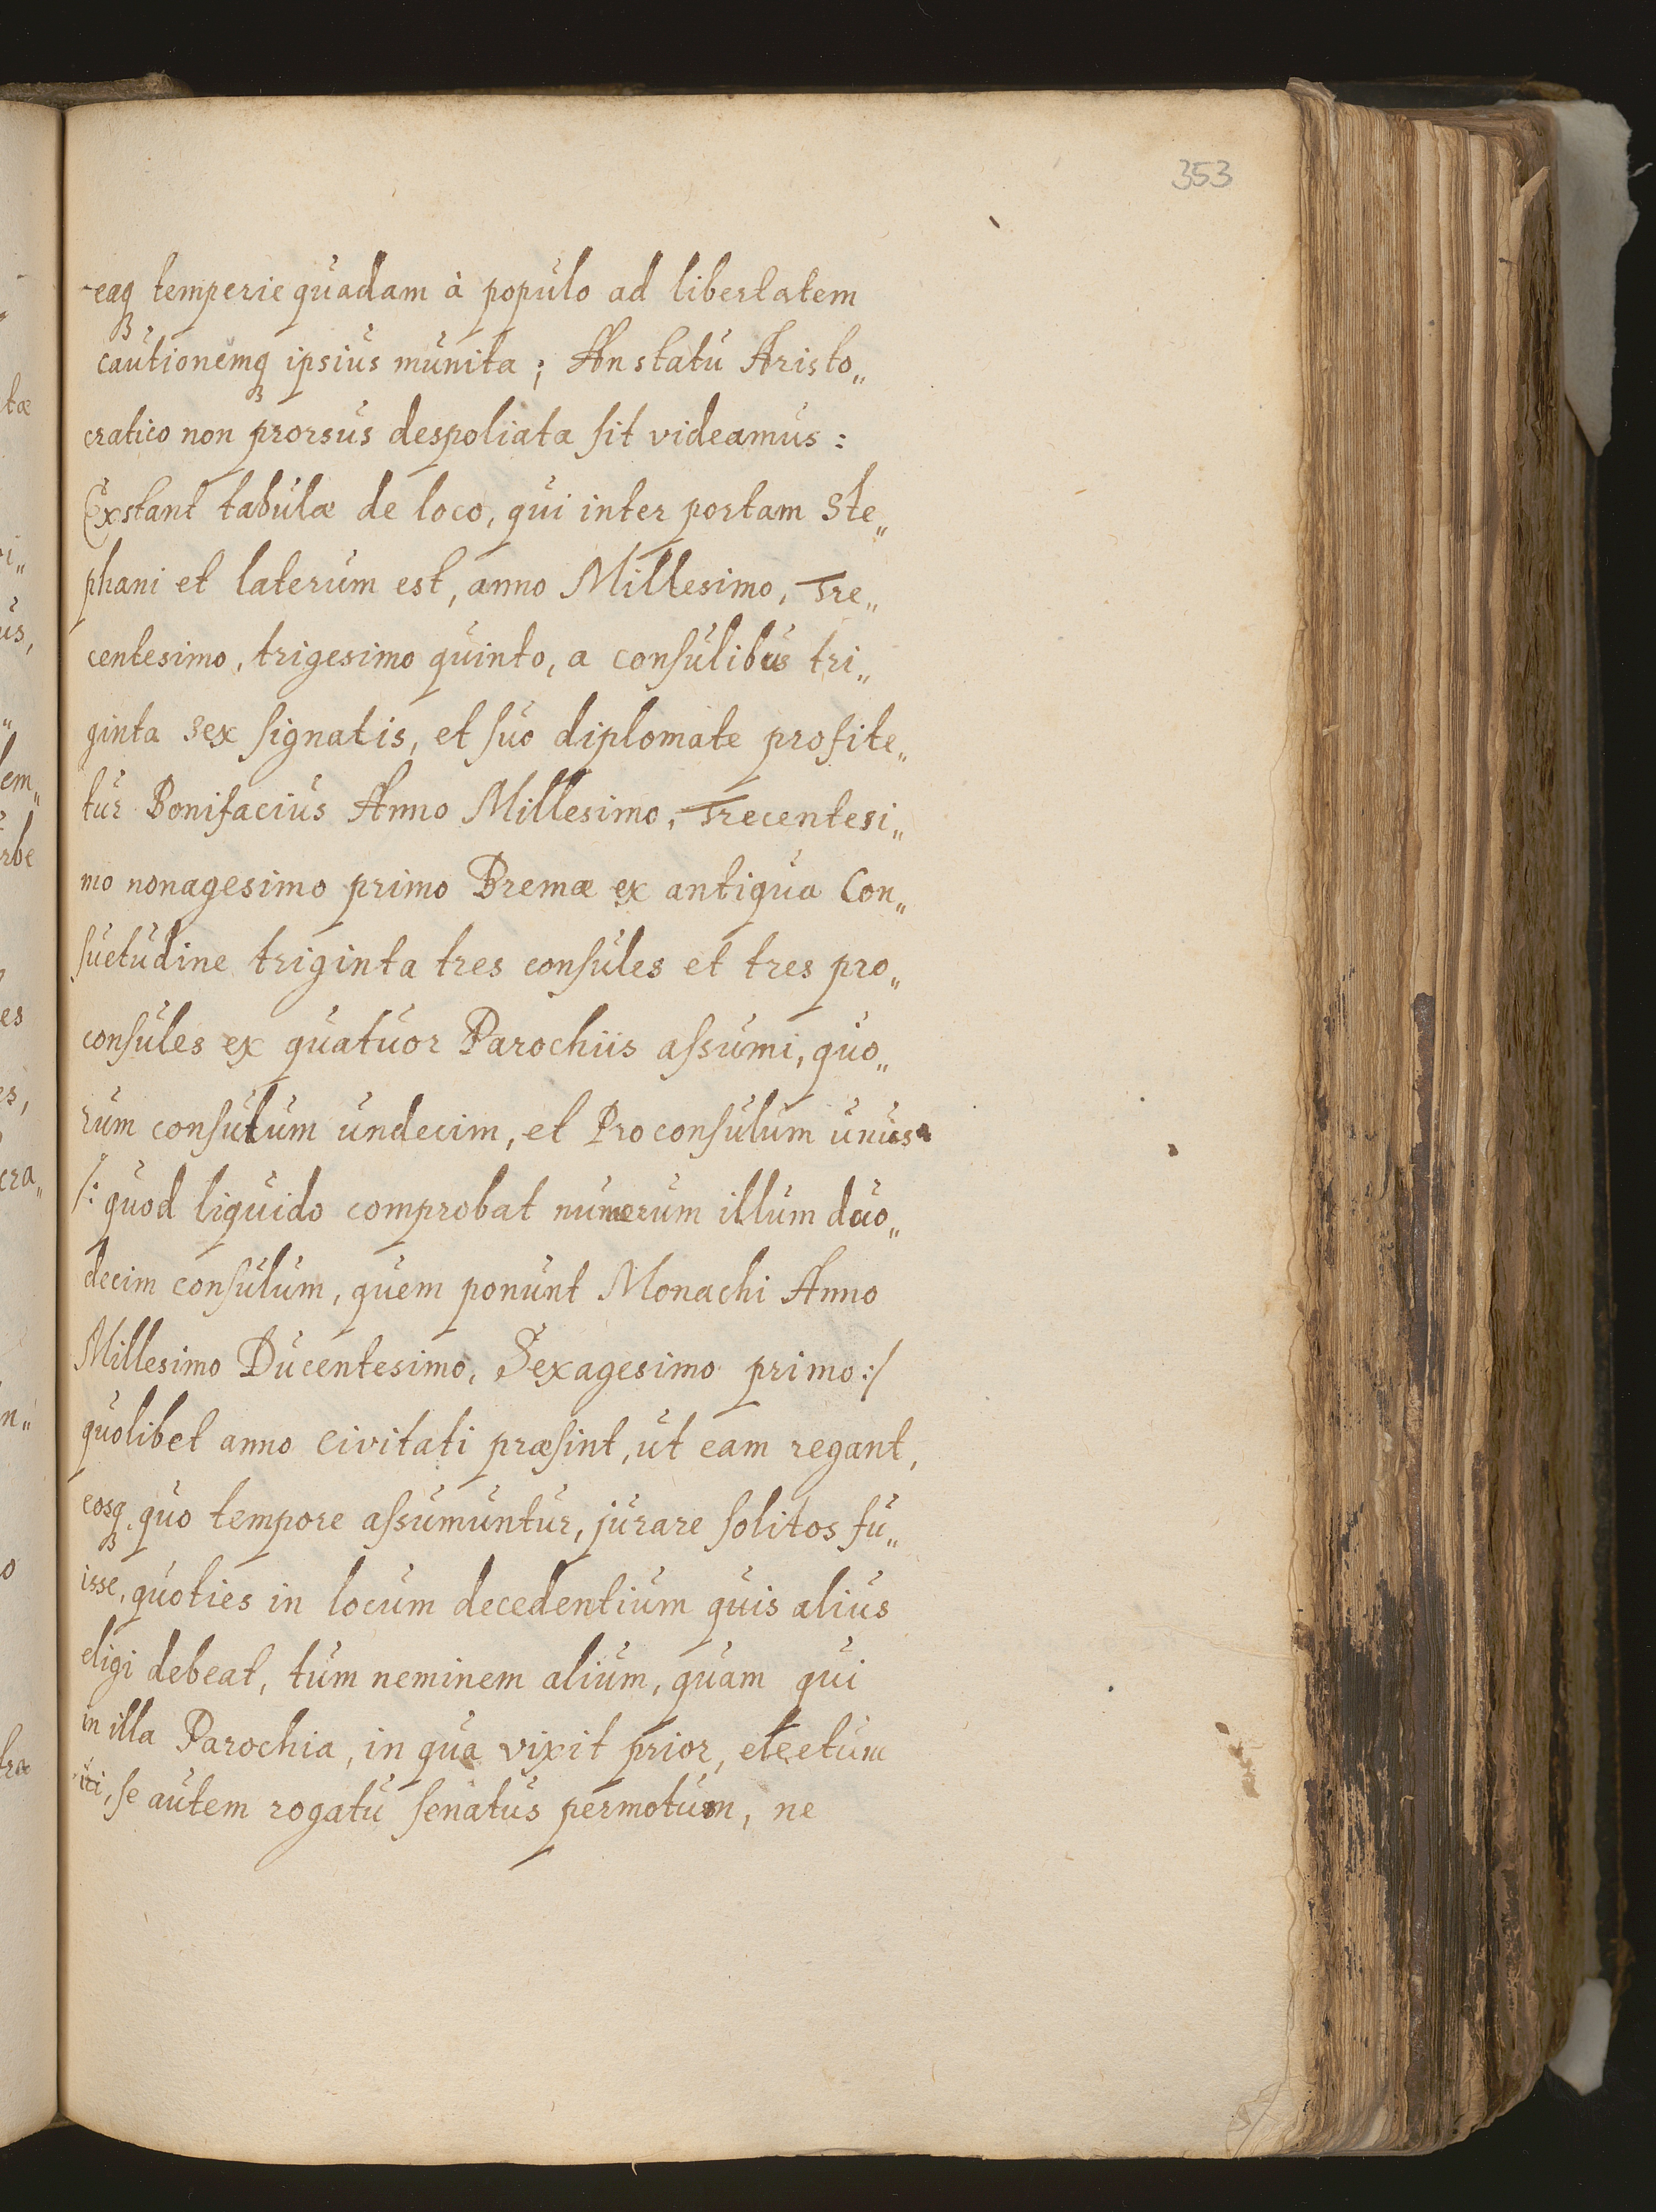 353
eaqꝫ temperie quadam à populo ad libertatem
cautionemqꝫ ipsius munita; An statu Aristo„
cratico non prorsus despoliata sit videamus:
Exstant tabulæ de loco, qui inter portam Ste„
phani et laterum est, anno Millesimo, Tre„
centesimo, trigesimo quinto, a consulibus tri„
ginta sex signatis, et suo diplomate profite„
tur Bonifacius Anno Millesimo, Trecentesi„
mo nonagesimo primo Bremæ ex antiqua Con„
suetudine triginta tres consules et tres pro„
consules ex quatuor Parochiis assumi, quo„
rum consulum undecim, et Proconsulum unus
/: quod liquido comprobat numerum illum duo„
decim consulum, quem ponunt Monachi Anno
Millesimo Ducentesimo, Sexagesimo primo :/
quolibet anno civitati præsint, ut eam regant,
eosqꝫ quo tempore assumuntur, jurare solitos fu„
isse, quoties in locum decedentium quis alius
eligi debeat, tum neminem alium, quam qui
in illa Parochia, in qua vixit prior, electum
iri, se autem rogatu senatus permotum, ne